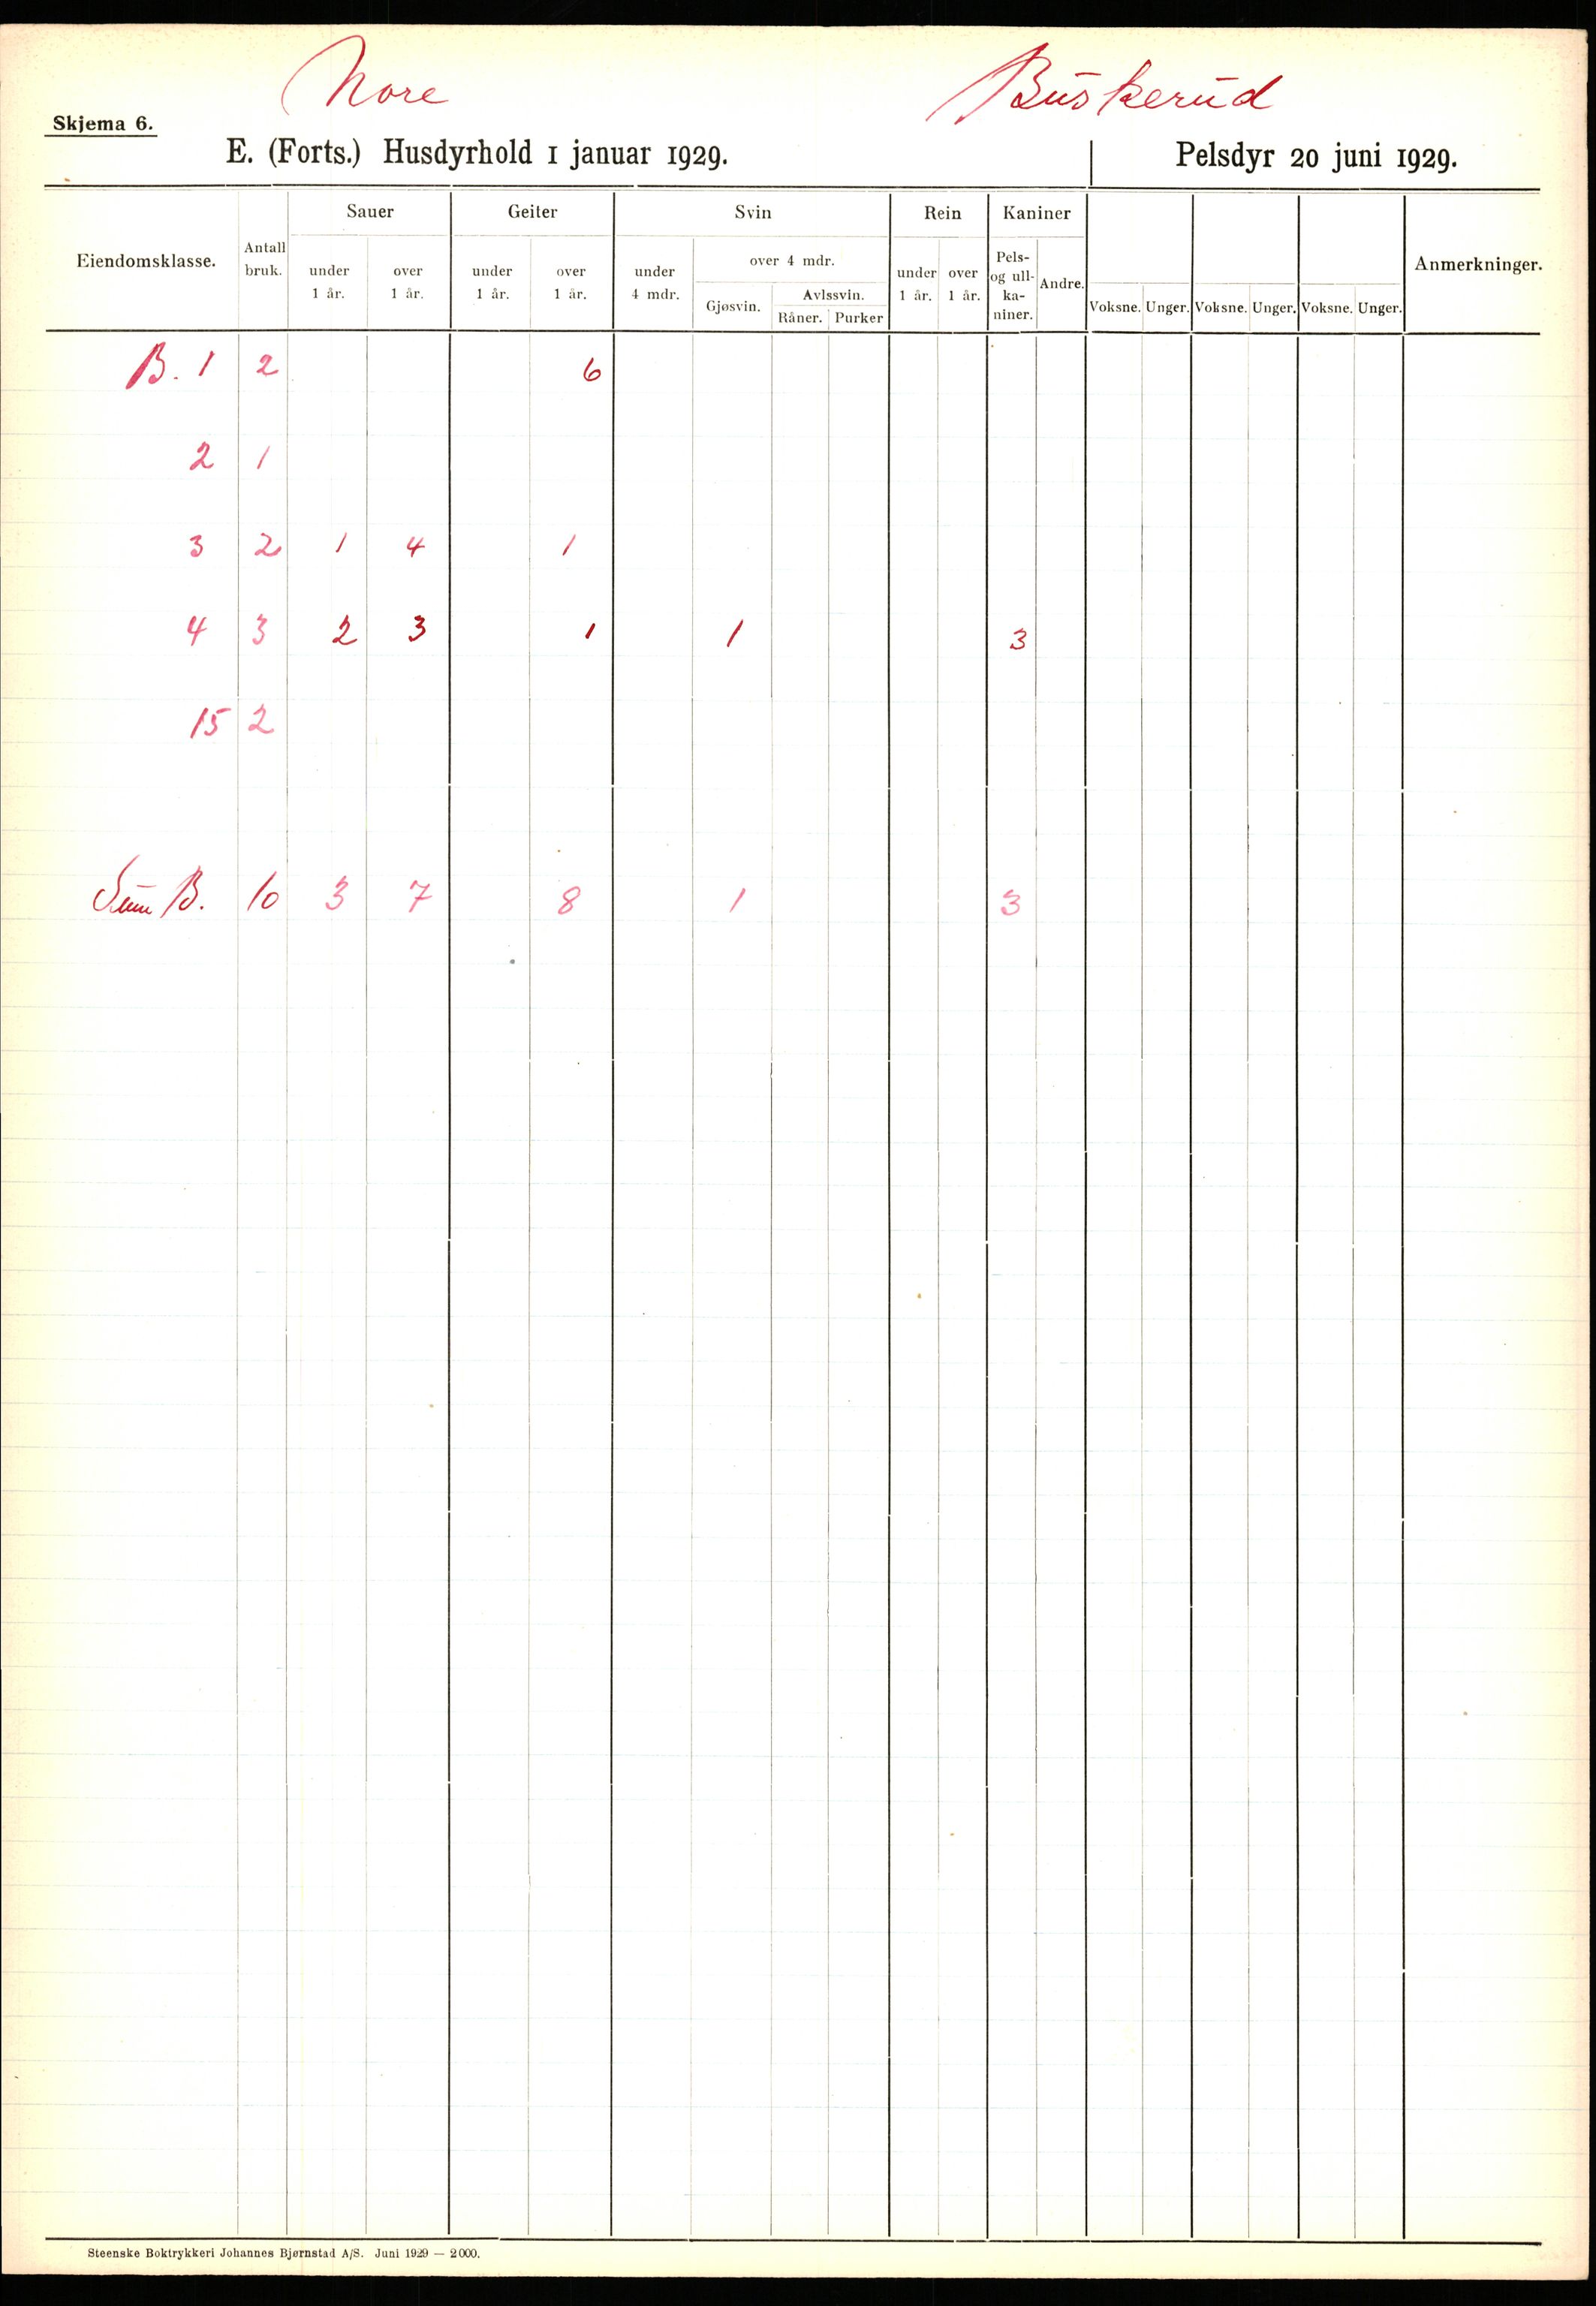 Nore Buskerud
Skjema 6.
E. (Forts.) Husdyrhold 1 januar 1929. Pelsdyr 20 juni 1929.
Eiendomsklasse. Antall bruk. Sauer Geiter Svin Rein Kaniner Anmerkninger.
under 1 år. over 1 år. under 1 år. over 1 år. under 4 mdr. over 4 mdr. under 1 år. over 1 år. Pels- og ull- ka- niner. Andre.
Gjøsvin. Avlssvin. Voksne. Unger. Voksne. Unger. Voksne. Unger.
Råner. Purker
B. 1 2 6
2 1
3 2 1 4 1
4 3 2 3 1 1 3
15 2
Sum B. 10 3 7 8 1 3
Steenske Boktrykkeri Johannes Bjørnstad A/S. Juni 1929 — 2000.